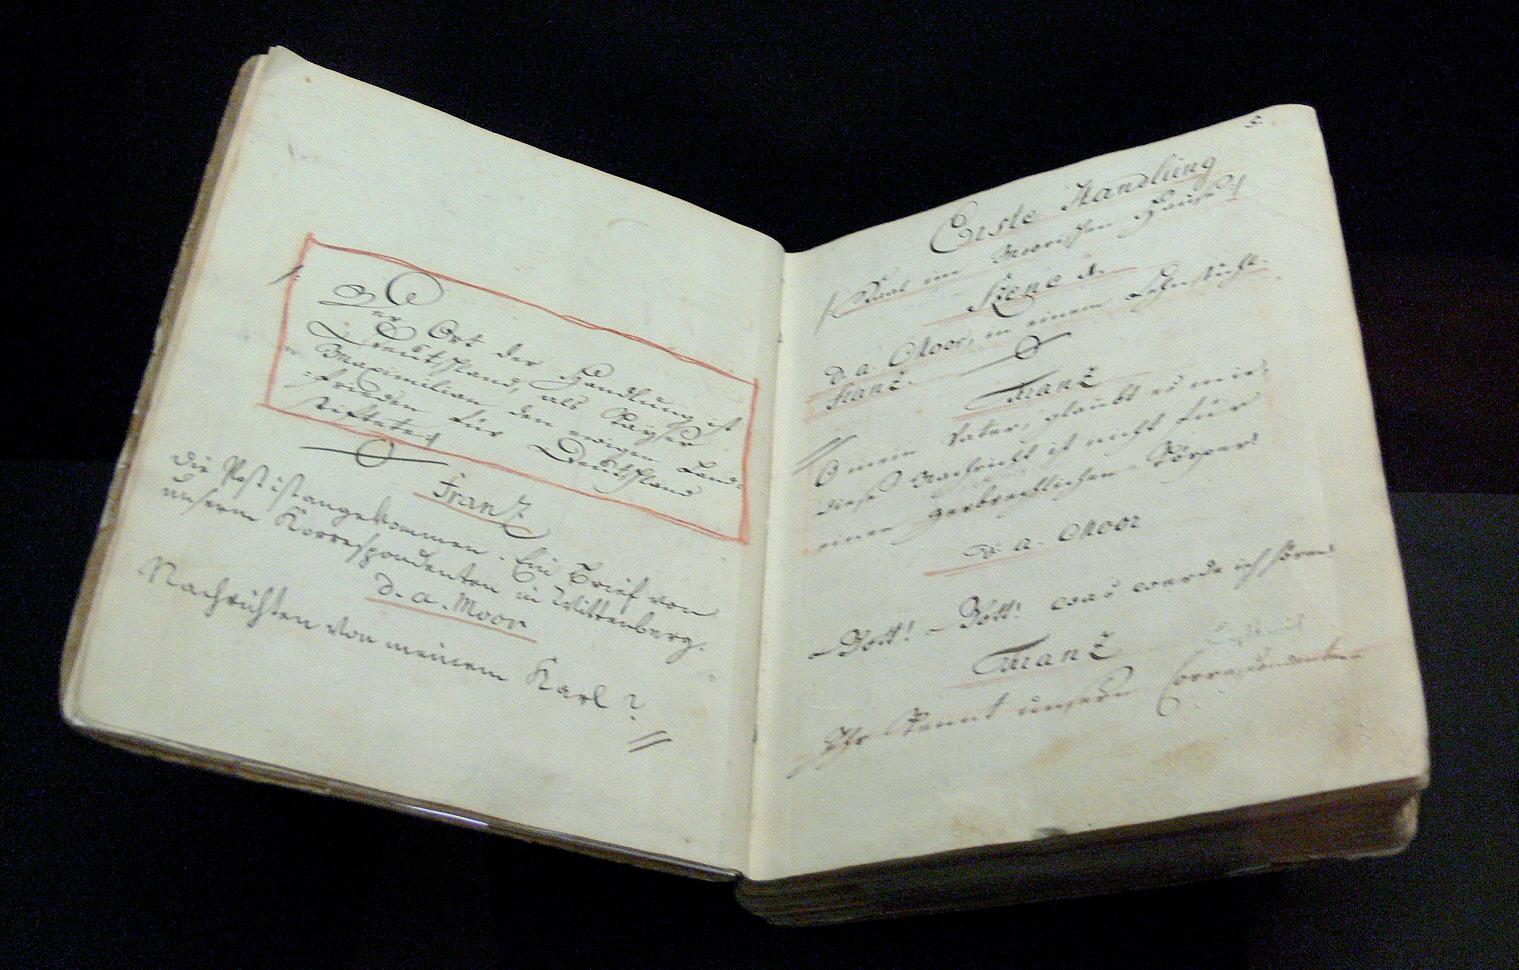 Der Ort der Handlung ist
Deutschland, als Kaiser
Maximilian den ewigen Land-
-frieden für Deutschland
stiftete.
Franz
Die Post ist angekommen. Ein Brief von
unserm Korrespondenten in Wittenberg.
d. a. Moor
Nachrichten von meinem Karl?
5.
Erste Handlung
Saal im Moorischen Hause
Szene 1.
D. a. Moor, in einem Lehnstuhl.
Franz.
Franz
O mein Vater, glaubt es mir
diese Nachricht ist nicht für
einen zerbrechlichen Körper!
D. a. Moor
Gott! Gott! was werde ich hören!
Franz
Ihr kennt unsern Correspondenten